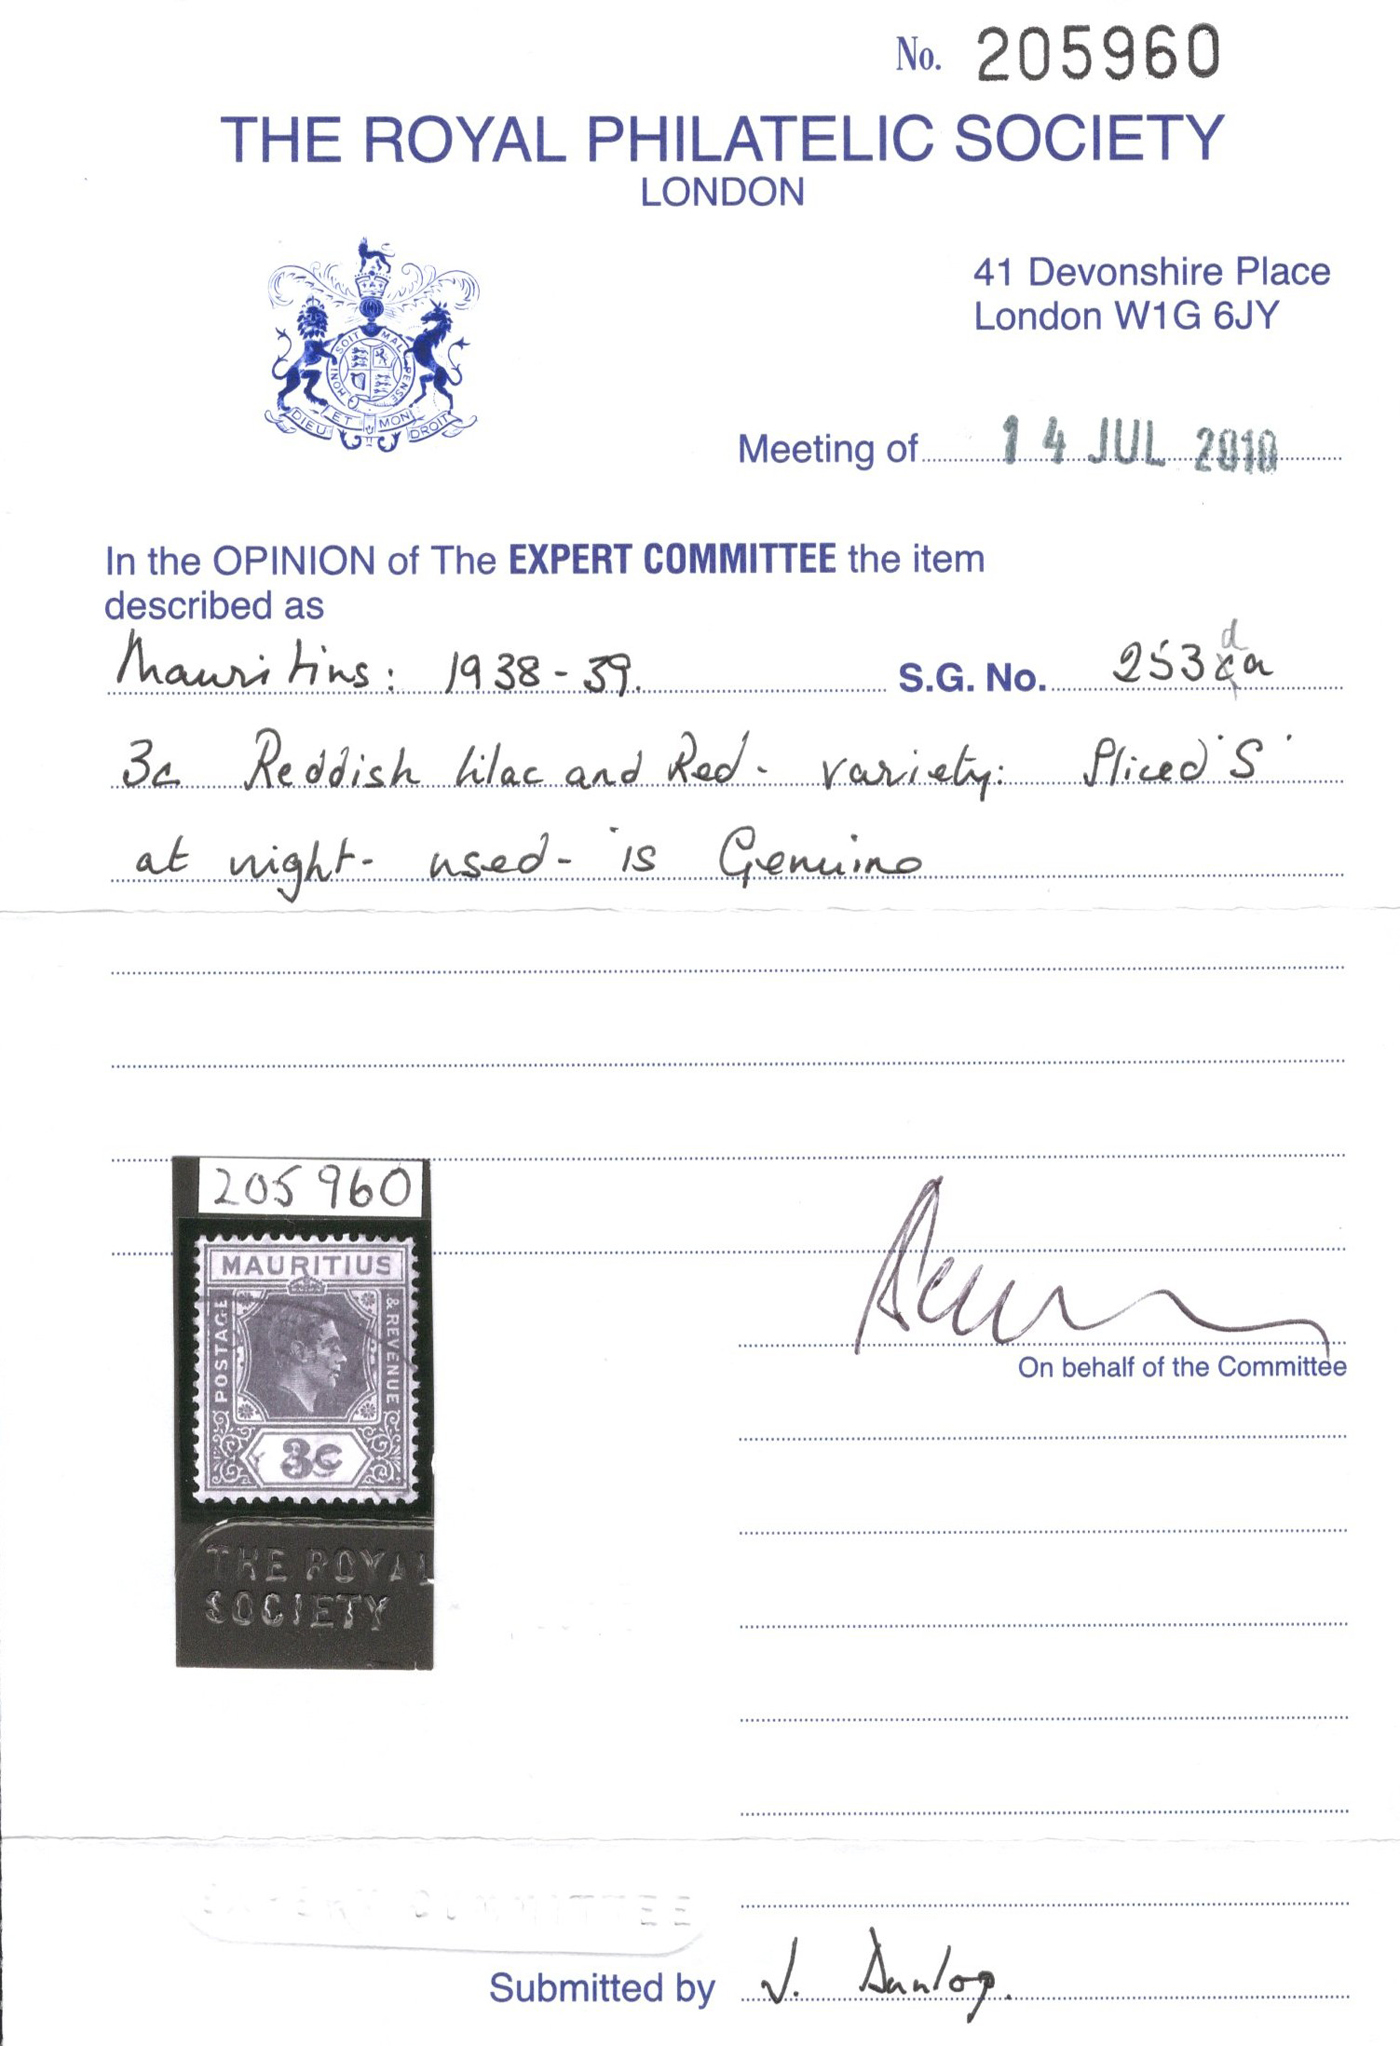 No. 205960
THE ROYAL PHILATELIC SOCIETY
LONDON
41 Devonshire Place
London W1G 6JY
HONI SOIT MAL PENSE
DIEU ET MON DROIT
Meeting of 14 JUL 2010
In the OPINION of The EXPERT COMMITTEE the item
described as
Mauritius: 1938-39. S.G. No. 253da
3c Reddish lilac and Red - variety: Sliced 'S'
at night - used - is Genuine
205960
MAURITIUS
POSTAGE
& REVENUE
3c
On behalf of the Committee
THE ROYAL
SOCIETY
Submitted by J. Dunlop.